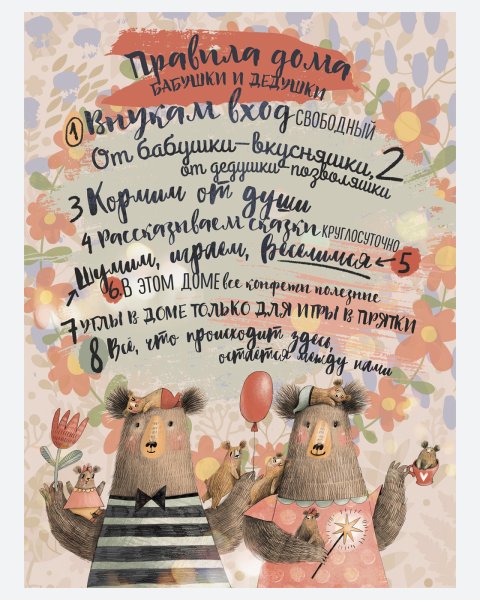 Правила дома
БАБУШКИ И ДЕДУШКИ
1 Внукам вход СВОБОДНЫЙ
От бабушки–вкусняшки, 2
от дедушки–позволяшки
3 Кормим от души
4 Рассказываем сказки КРУГЛОСУТОЧНО
Шумим, играем, веселимся 5
6. В ЭТОМ ДОМЕ все конфеты полезние
7 УГЛЫ В ДОМЕ ТОЛЬКО ДЛЯ ИГРЫ В ПРЯТКИ
8 Всё, что происходит здесь,
остается между нами